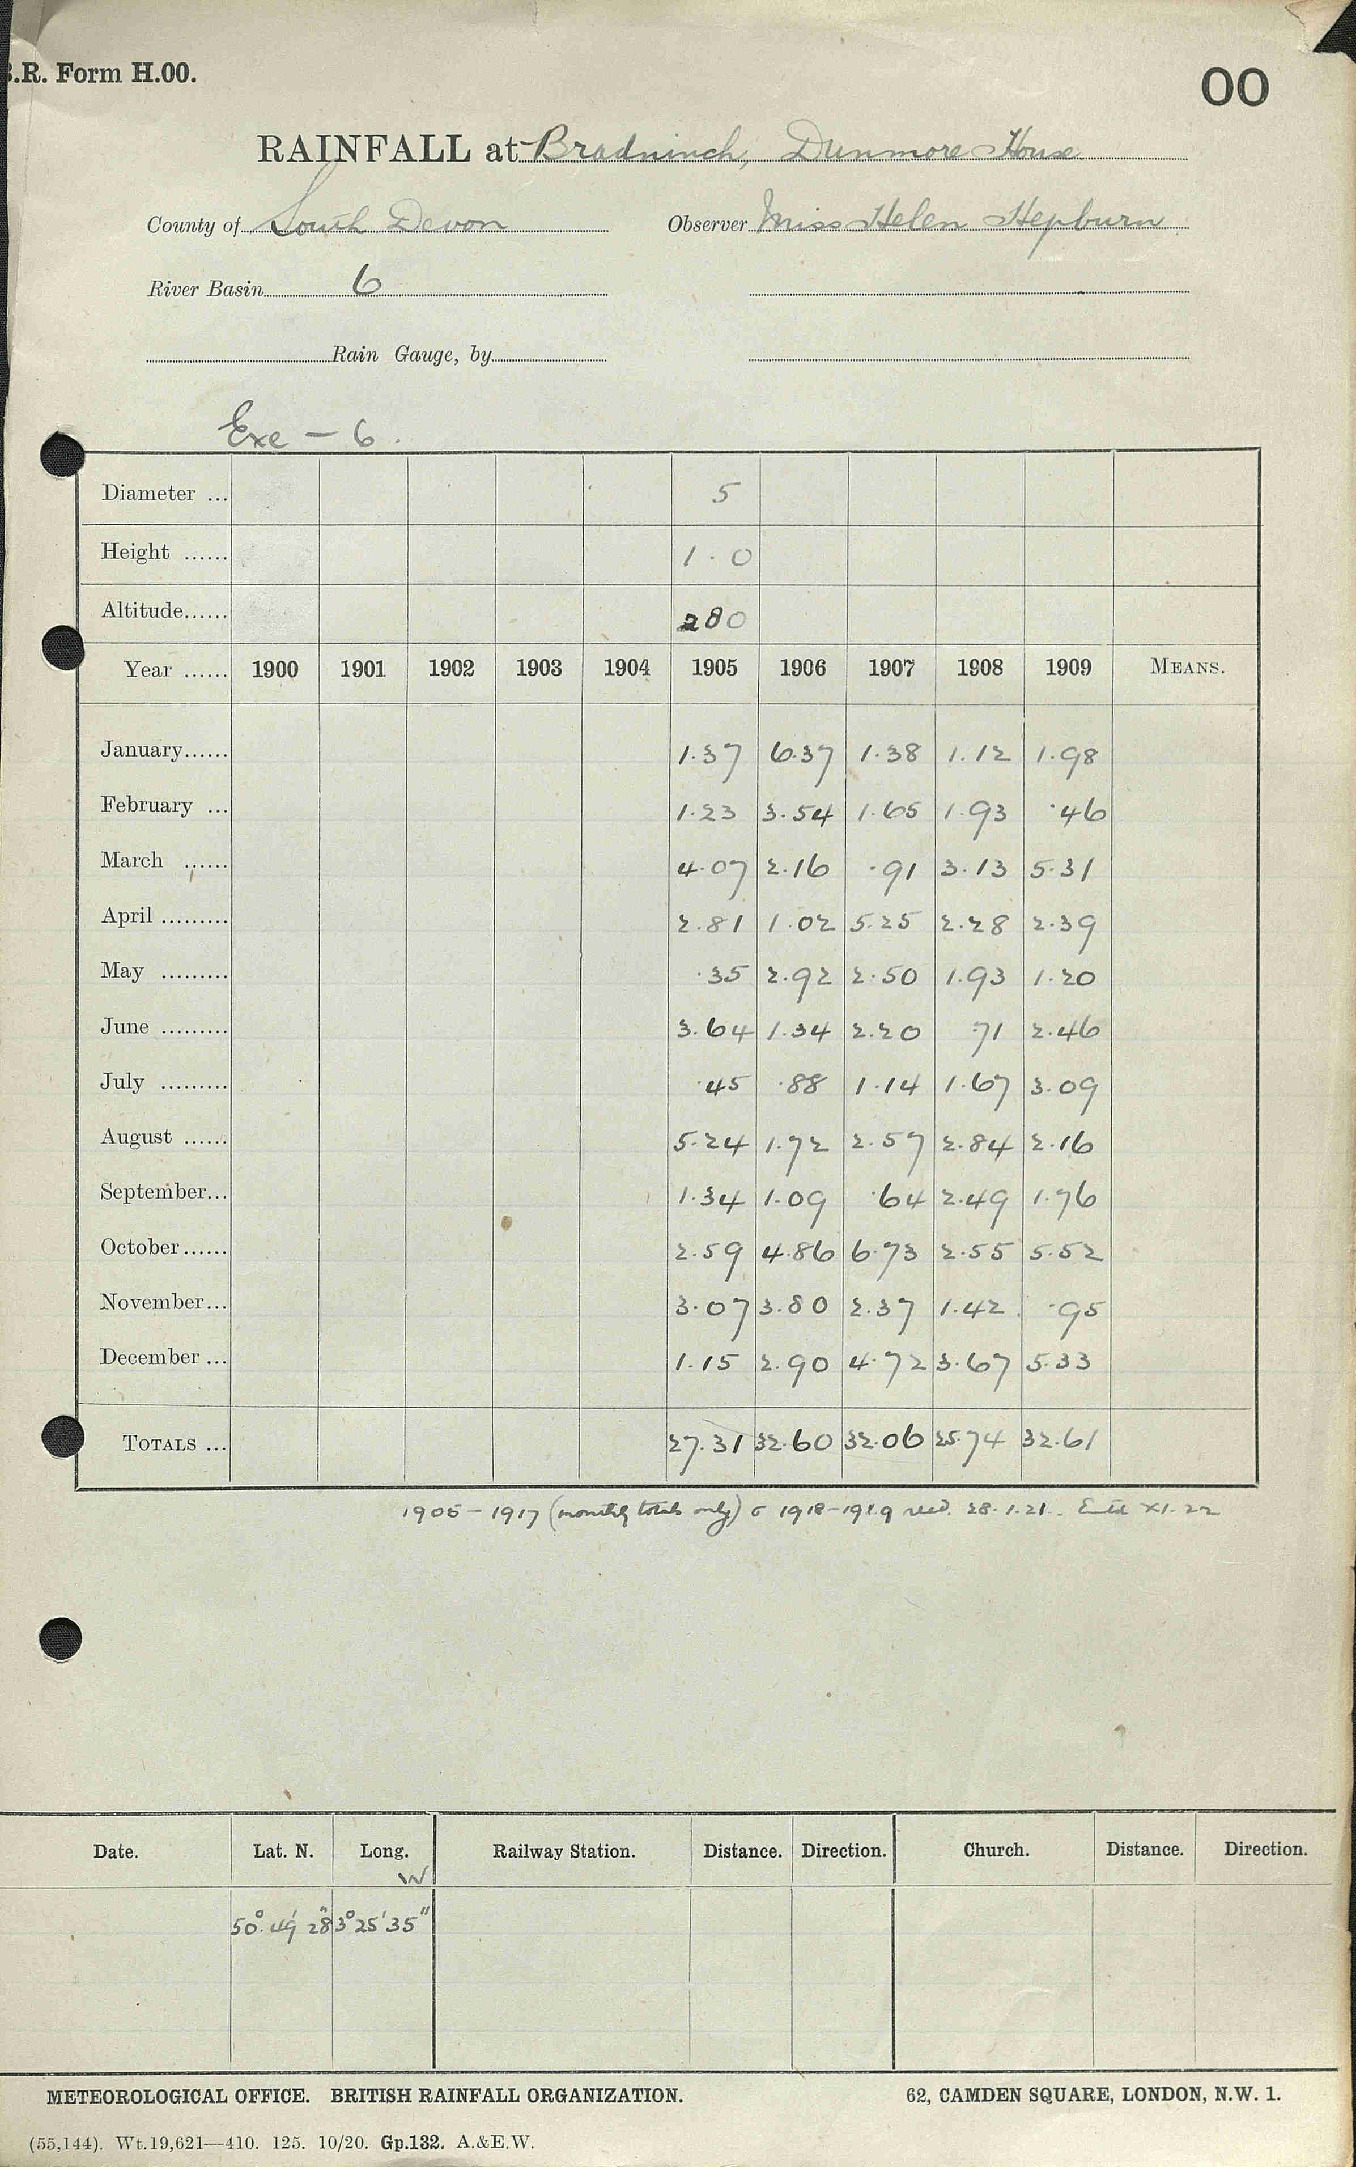 B.R. Form H.00.
00
RAINFALL at Bradninch, Dunmore House
County of South Devon Observer Miss Helen Hepburn
River Basin 6
Rain Gauge, by
Exe - 6.
Diameter ... 5
Height ...... 1.0
Altitude...... 280
Year ...... 1900 1901 1902 1903 1904 1905 1906 1907 1908 1909 MEANS.
January...... 1.37 6.37 1.38 1.12 1.98
February ... 1.23 3.54 1.65 1.93 .46
March ...... 4.07 2.16 .91 3.13 5.31
April ......... 2.81 1.02 5.25 2.28 2.39
May ......... .35 2.92 2.50 1.93 1.20
June ......... 3.64 1.34 2.20 .71 2.46
July ......... .45 .88 1.14 1.67 3.09
August ...... 5.24 1.72 2.57 2.84 2.16
September... 1.34 1.09 .64 2.49 1.76
October...... 2.59 4.86 6.73 2.55 5.52
November... 3.07 3.80 2.37 1.42 .95
December ... 1.15 2.90 4.72 3.67 5.33
TOTALS ... 27.31 32.60 32.06 25.74 32.61
1905 - 1917 (monthly totals only) 1918-1919 recd. 28.1.21. Entd XI.22
Date. Lat. N. Long. Railway Station. Distance. Direction. Church. Distance. Direction.
W
50° 49' 28" 3° 25' 35"
METEOROLOGICAL OFFICE. BRITISH RAINFALL ORGANIZATION. 62, CAMDEN SQUARE, LONDON, N.W. 1.
(55,144). Wt.19,621—410. 125. 10/20. Gp.132. A.&E.W.